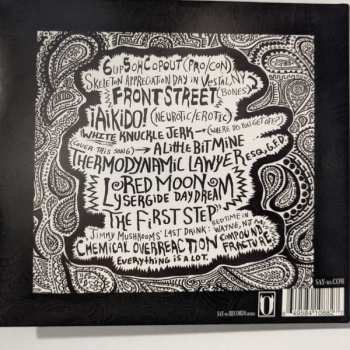 6up 5oh Copout (Pro/Con)
Skeleton Appreciation Day in Vestal, NY
(Bones)
Front Street
¡Aikido! (Neurotic/Erotic)
White Knuckle Jerk → (Where Do You Get Off?)
(Cover This Song) → A Little Bit Mine
Thermodynamic Lawyer Esq, G.F.D.
Red Moon
Lysergide Daydream
The First Step
Jimmy Mushrooms' Last Drink: Bedtime in Wayne, NJ
Chemical Overreaction
Compound Fracture
Everything is a lot.
SAY-10.COM
SAY-10 RECORDS